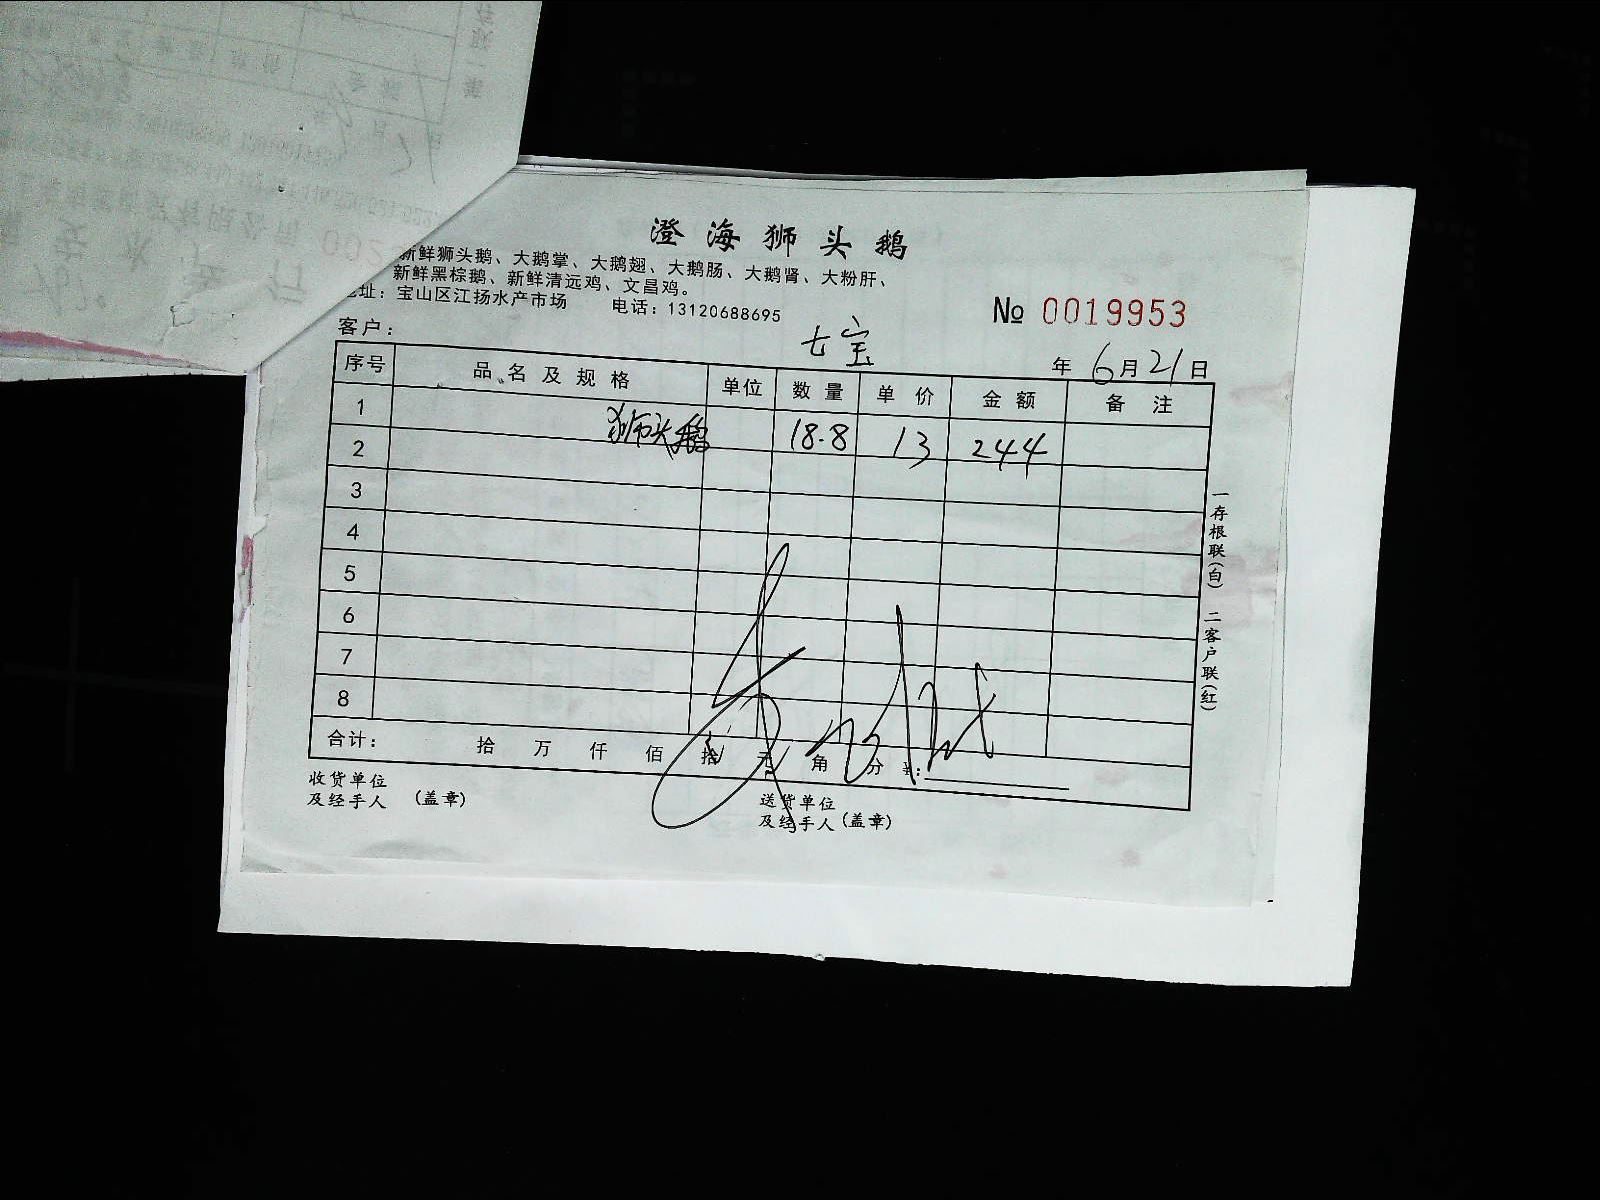 澄海狮头鹅
新鲜狮头鹅、大鹅掌、大鹅翅、大鹅肠、大鹅肾、大粉肝、
新鲜黑棕鹅、新鲜清远鸡、文昌鸡。
地址：宝山区江扬水产市场 电话：13120688695
№ 0019953
客户： 七宝
年 6月21日
序号 品名及规格 单位 数量 单价 金额 备注
1 狮头鹅 18.8 13 244
2
3
4
5
6
7
8
合计： 拾 万 仟 佰 拾 元 角 分 ¥：
收货单位
及经手人 (盖章)
送货单位
及经手人 (盖章)
一存根联(白) 二客户联(红)